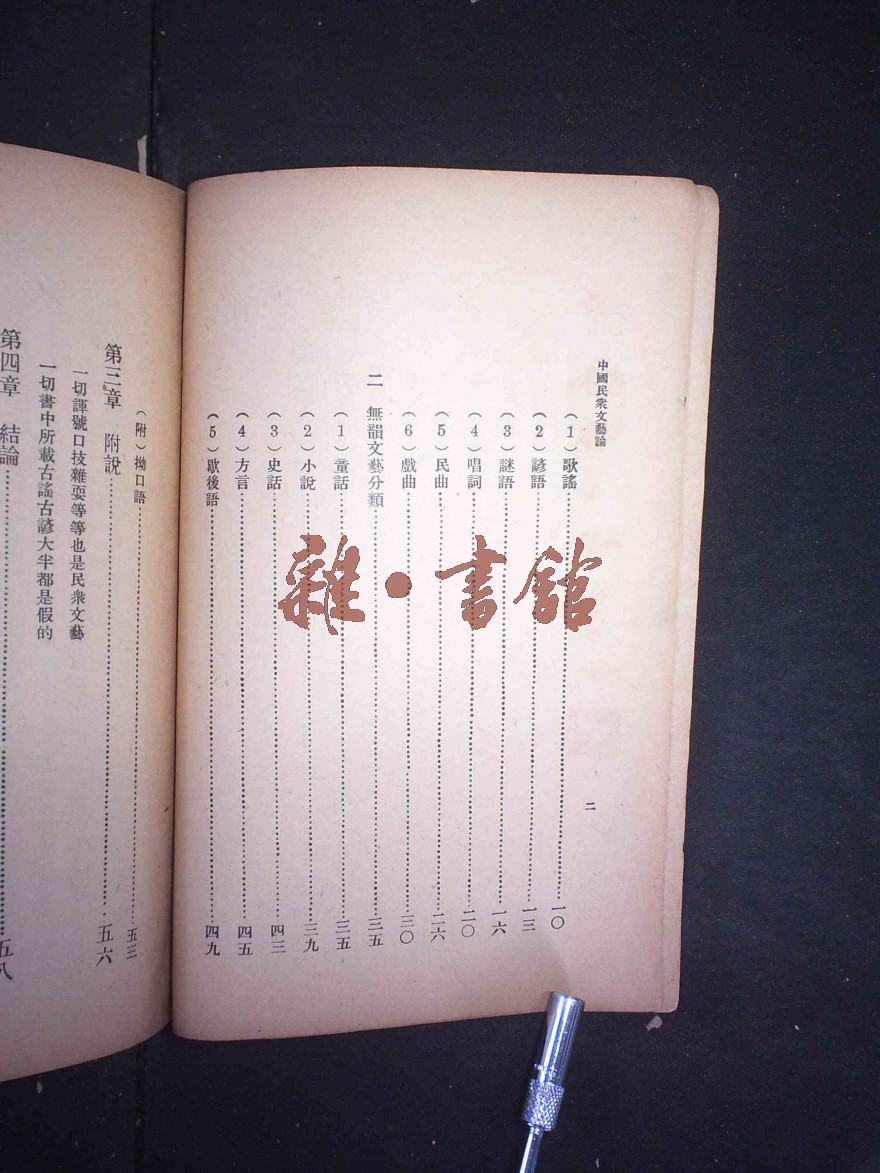 中國民衆文藝論
二
(1)歌謠……一〇
(2)諺語……一三
(3)謎語……一六
(4)唱詞……二〇
(5)民曲……二六
(6)戲曲……三〇
二 無韻文藝分類……三五
(1)童話……三五
(2)小說……三九
(3)史話……四三
(4)方言……四五
(5)歇後語……四九
(附)拗口語……五三
第三章 附說……五六
一切諢號口技雜耍等等也是民衆文藝
一切書中所載古謠古諺大半都是假的
第四章 結論……五八
雜·書館